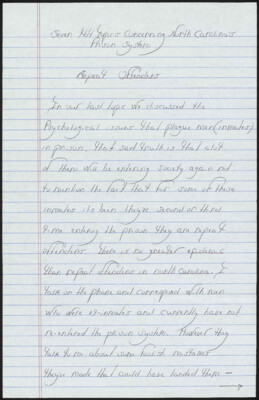 Sean Hill Topics Concerning North Carolina's
Prison System
Repeat Offenders
In our last topic we discussed the
Psychological issues that plague men (inmates)
in prison. That said truth is that alot
of them will be entering society again not
to mention the fact that for some of these
inmates its been they're second or third
time entering the prison they are repeat
offenders. There is no greater epidemic
than repeat offenders in north carolina. I
talk on the phone and correspond with men
who were ex-inmates and currently have not
re-entered the prison system. Rather they
talk to me about some foolish mistakes
they've made that could have landed them —